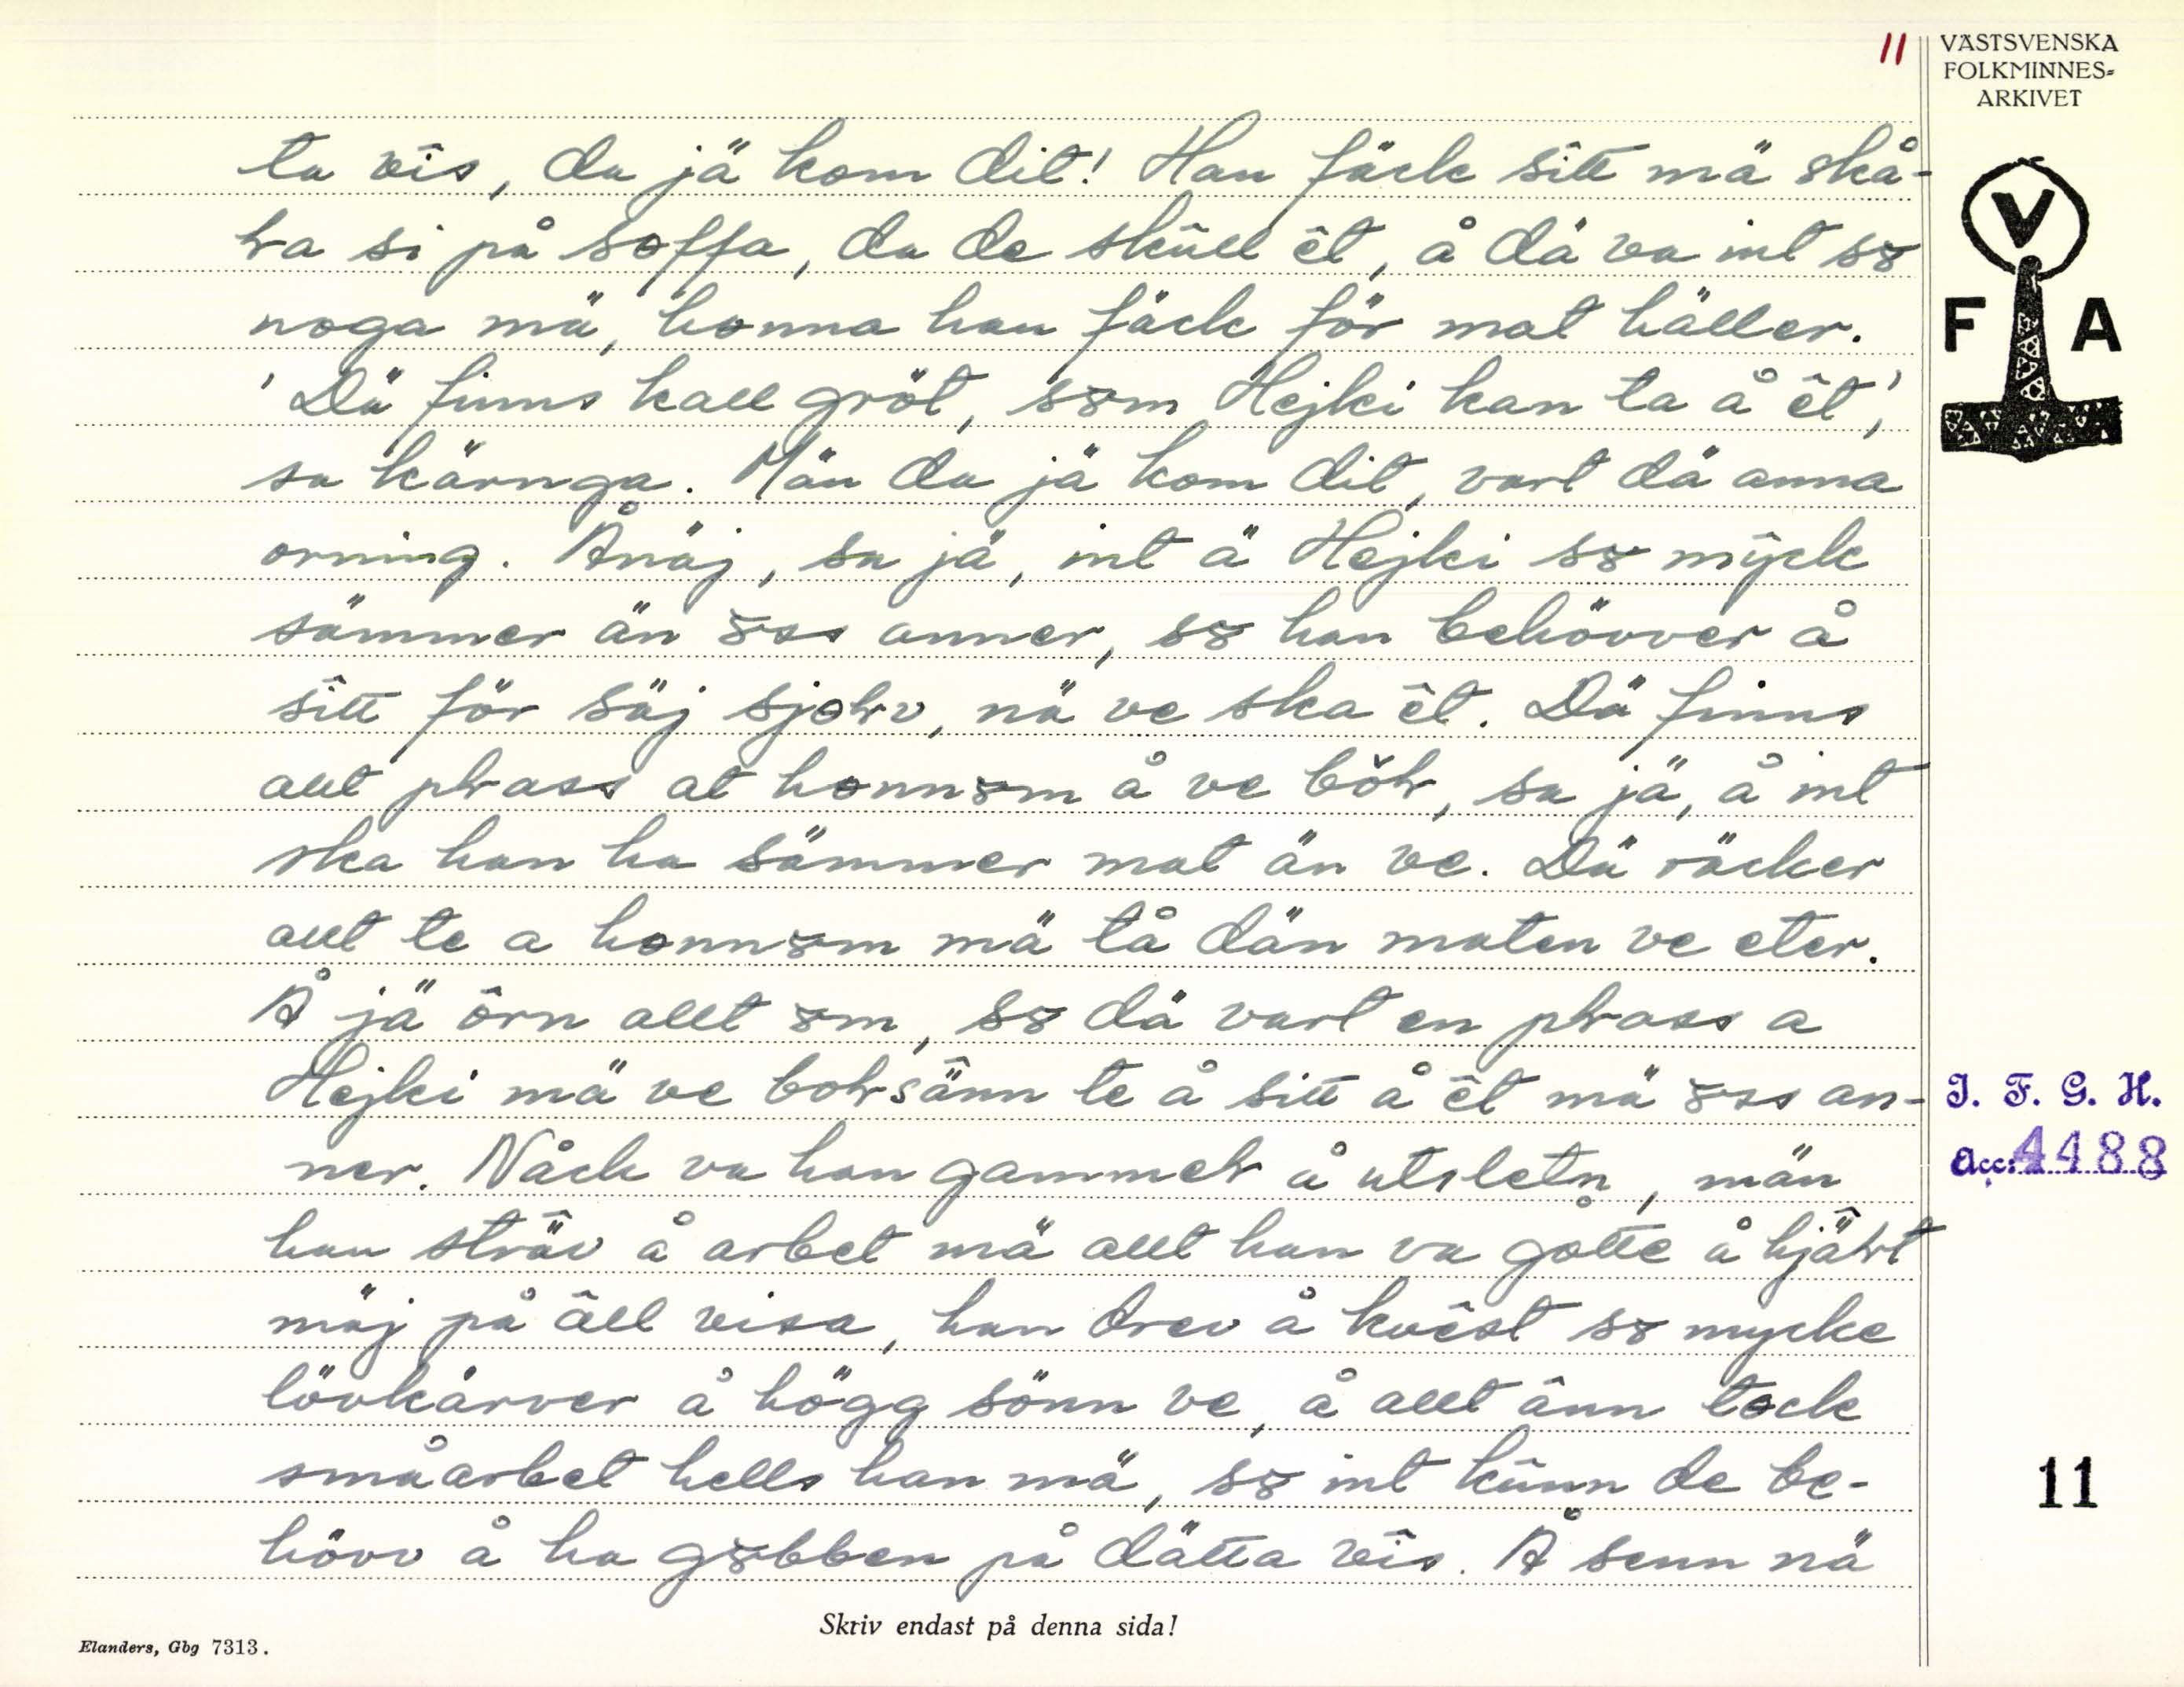 11
VÄSTSVENSKA
FOLKMINNES-
ARKIVET
V
F A
ta vîs, da jä kom dit! Han fäck sîtt mä skå-
ƚa si på soffa, da de skûll êt, å dä va int sꝏ
noga mä, honna han fäck för mat häller.
'Dä finns kall gröt, sꝏm Hejki kan ta å êt',
sa kärnga. Män da jä kom dit, vart dä anna
orning. Ånäj, sa jä, int ä Hejki sꝏ mŷck
sämmer än ꝏss anner, sꝏ han behövver å
sîtt för säj sjoƚv, nä ve ska êt. Dä finns
allt pƚass at honnꝏm å ve böƚ, sa jä, å int
ska han ha sämmer mat än ve. Dä räcker
allt te a honnꝏm mä tå dän maten ve eter.
Å jä ôrn allt ꝏm, sꝏ dä vart en pƚass a
Hejki mä ve boƚsänn te å sitt å êt mä ꝏss an-
ner. Nåck va han gammeƚ å utsletn, män
han strä̂v å arbet mä allt han va gôtte å hjä̂ƚt
mäj på âll visa, han drev å kvêst sꝏ mycke
lövkärver å högg sönn ve, å allt ânn tock
småarbet hells han mä, sꝏ int kûnn de be-
hövv å ha gꝏbben på dätta vîs. Å senn nä
I. F. G. H.
Acc. 4488
11
Skriv endast på denna sida!
Elanders, Gbg 7313.